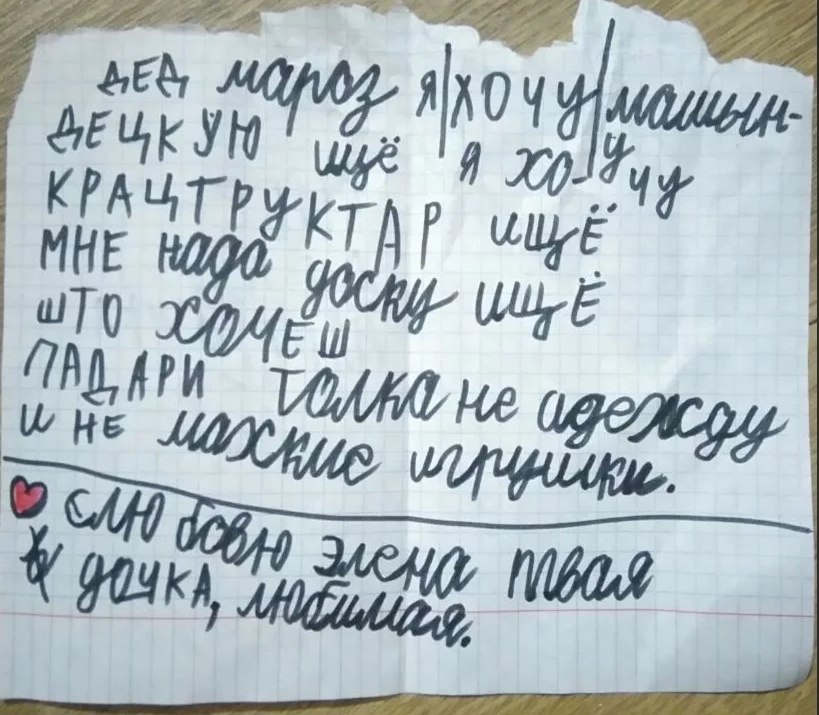 ДЕД мароз я хочу машын-
ДЕЦКУЮ ищё я хо-учу
КРАЦТРУКТАР ищЁ
МНЕ нада доску ищЁ
што хочЕШ
ПАДАРИ толка не адежду
и не махские игрушки.
слюбовю элена твая
дочка, любимая.